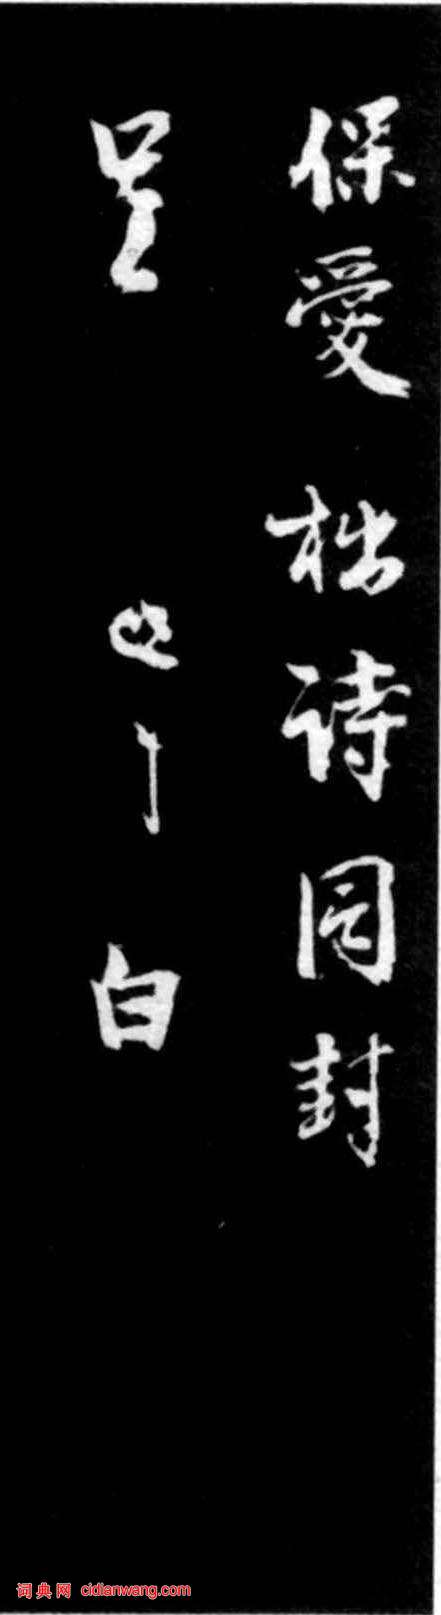 保愛 拙詩同封
呈 白
词典网 cidianwang.com